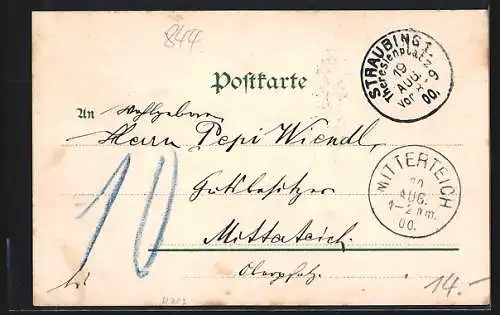 844.
STRAUBING 1.
Theresienplatz
19
AUG.
Vor. 8-9
00.
Postkarte
An Wohlgeboren
Herrn Pepi Wiendl,
Gutsbesitzer
Mitterteich.
Oberpfalz.
MITTERTEICH
20
AUG.
1-2 Nm.
00.
10
14.-